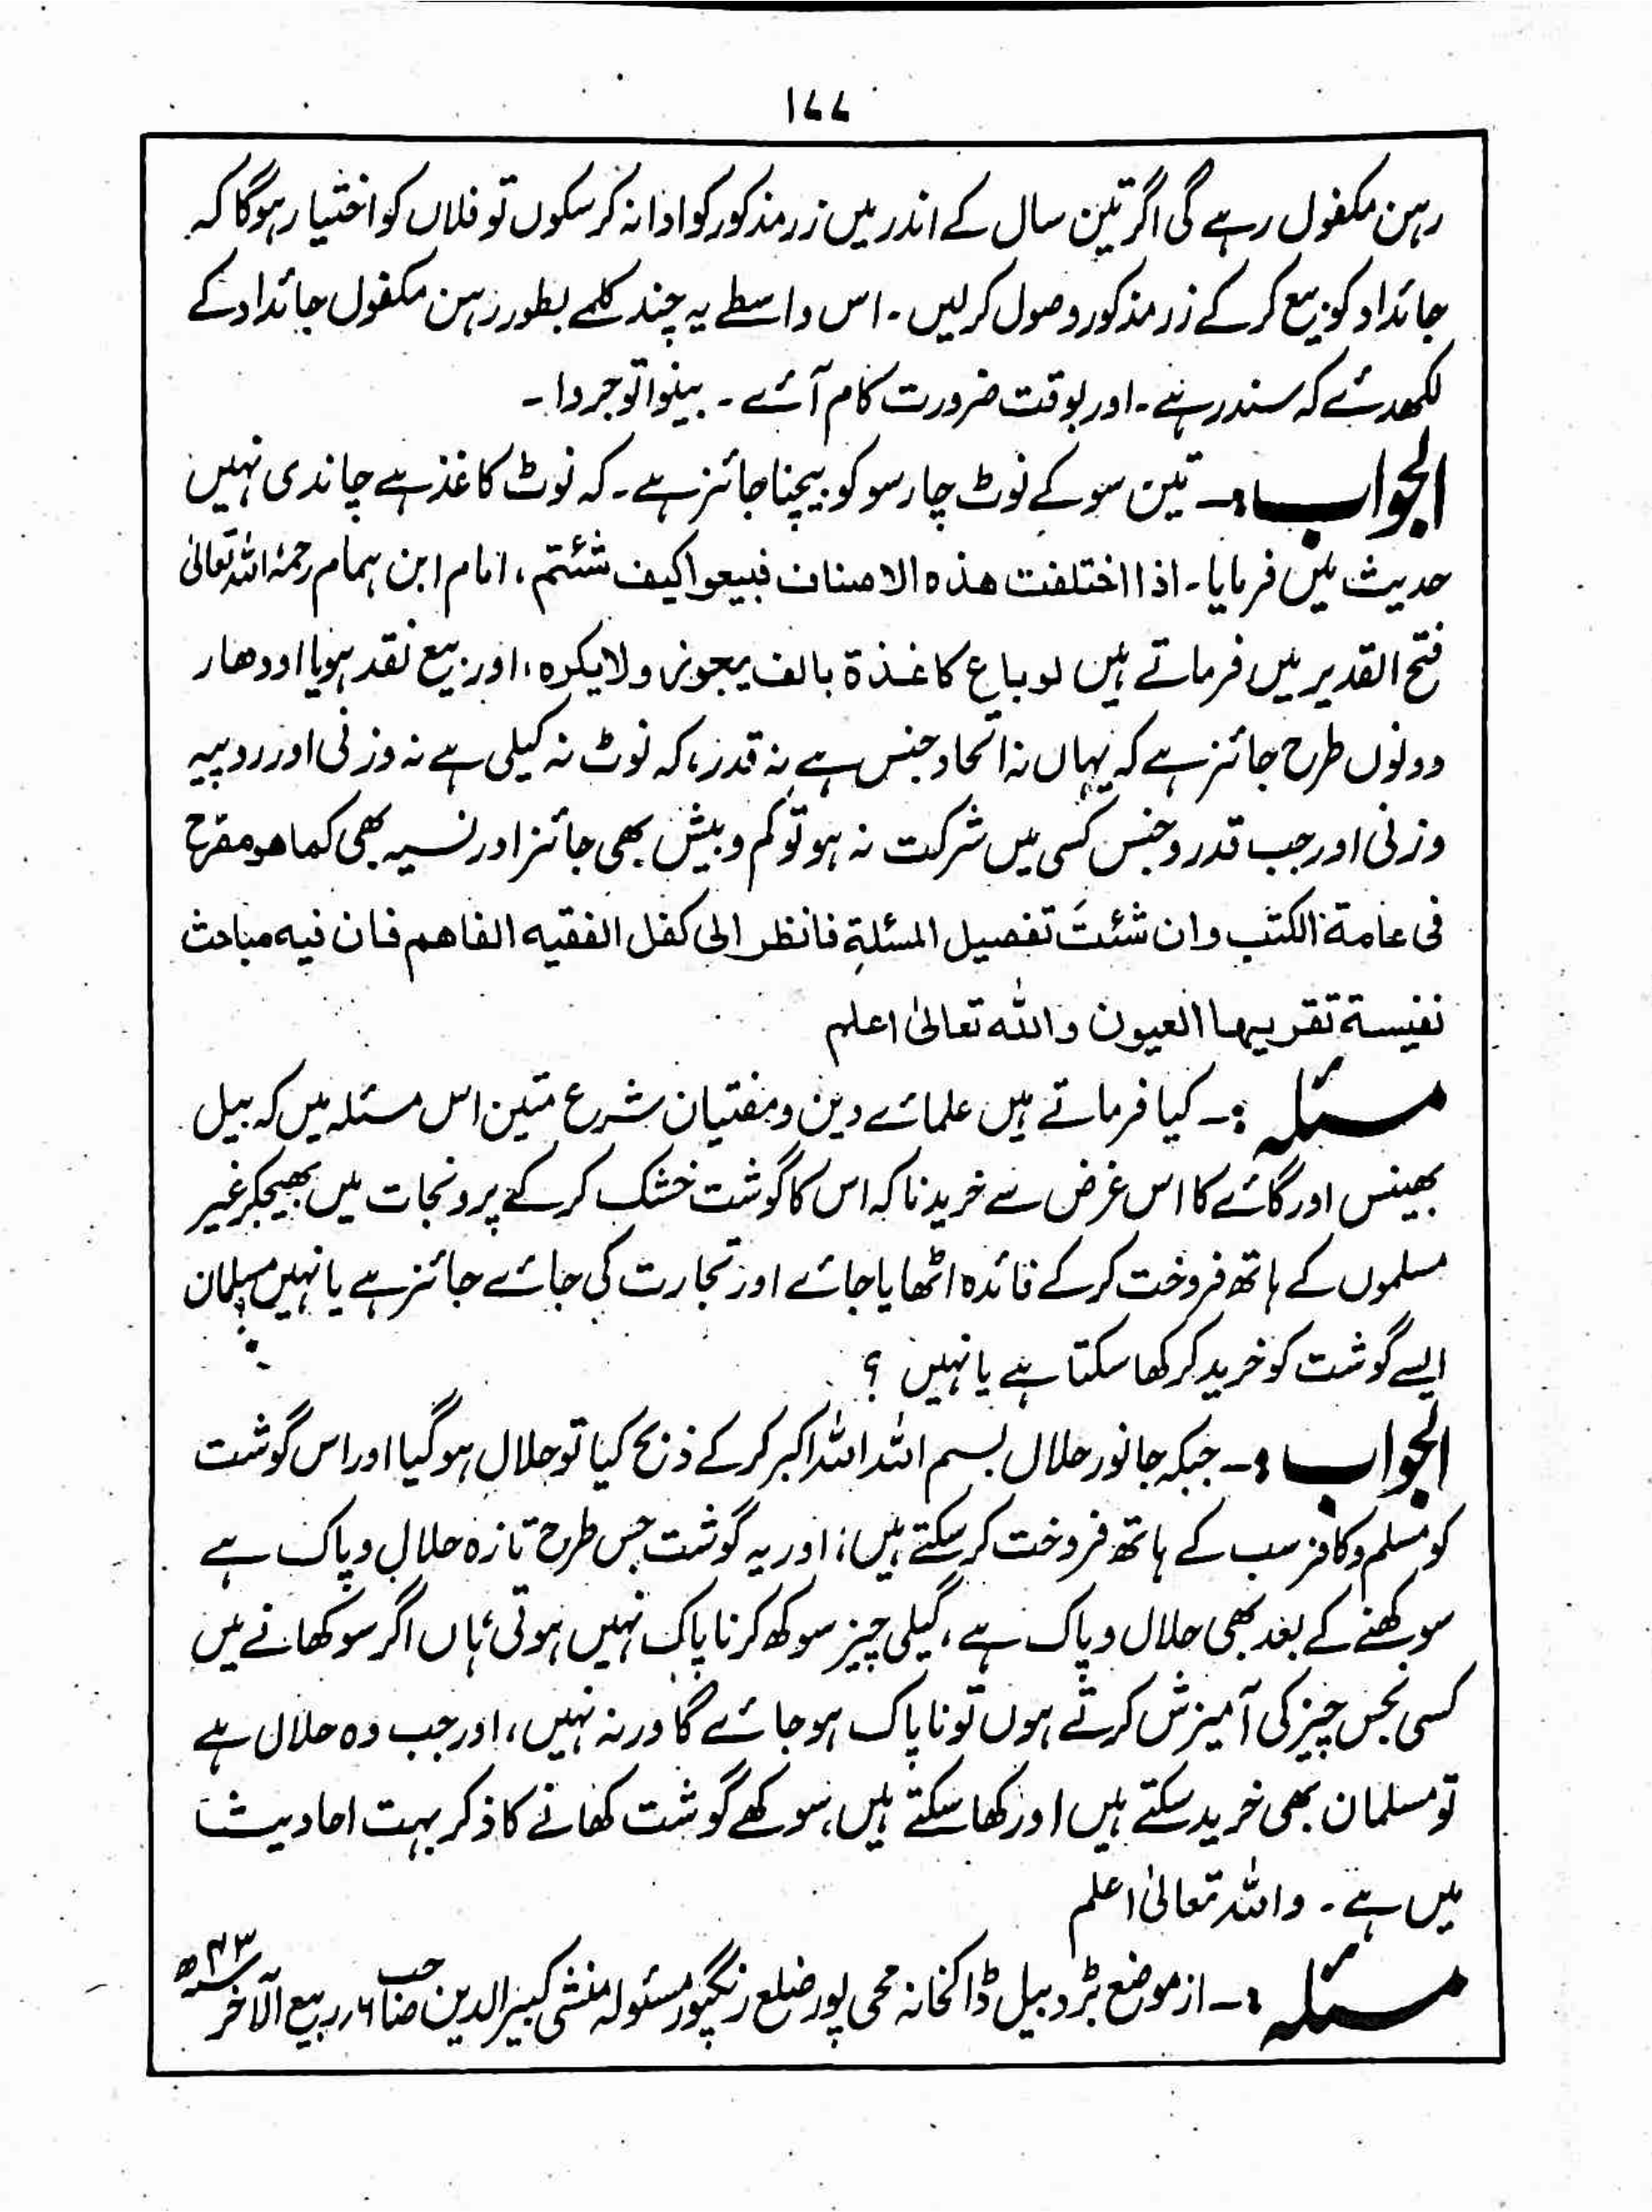 ۱۷۷
رہن مکفول رہے گی اگر تین سال کے اندر میں زر مذکور کو ادا نہ کر سکوں تو فلاں کو اختیار ہوگا کہ
جائداد کو بیع کر کے زر مذکور وصول کرلیں۔ اس واسطے یہ چند کلمے بطور رہن مکفول جائداد کے
لکھدئے کہ سند رہے۔ اور بوقت ضرورت کام آئے۔ بینوا توجروا۔
الجواب:۔ تین سو کے نوٹ چار سو کو بیچنا جائز ہے۔ کہ نوٹ کاغذ ہے چاندی نہیں
حدیث میں فرمایا۔ اذا اختلفت هذه الاصناف فبيعوا كيف شئتم، امام ابن ہمام رحمۃ اللہ تعالیٰ
فتح القدیر میں فرماتے ہیں لو باع كاغذة بالف يجوز ولا يكره، اور بیع نقد ہو یا اودھار
دونوں طرح جائز ہے کہ یہاں نہ اتحاد جنس ہے نہ قدر، کہ نوٹ نہ کیلی ہے نہ وزنی اور روپیہ
وزنی اور جب قدر و جنس کسی میں شرکت نہ ہو تو کم و بیش بھی جائز اور نسیہ بھی كما هو مصرح
فى عامة الكتب وان شئتَ تفصيل المسئلة فانظر الى كفل الفقيه الفاهم فان فيه مباحث
نفيسة تقر بها العيون والله تعالیٰ اعلم
مسئلہ:۔ کیا فرماتے ہیں علمائے دین و مفتیان شرع متین اس مسئلہ میں کہ بیل
بھینس اور گائے کا اس غرض سے خریدنا کہ اس کا گوشت خشک کر کے پرونجات میں بھیجکر غیر
مسلموں کے ہاتھ فروخت کر کے فائدہ اٹھایا جائے اور تجارت کی جائے جائز ہے یا نہیں؟ مسلمان
ایسے گوشت کو خرید کر کھا سکتا ہے یا نہیں ؟
الجواب:۔ جبکہ جانور حلال بسم اللہ اللہ اکبر کر کے ذبح کیا تو حلال ہو گیا اور اس گوشت
کو مسلم و کافر سب کے ہاتھ فروخت کر سکتے ہیں، اور یہ گوشت جس طرح تازہ حلال و پاک ہے
سوکھنے کے بعد بھی حلال و پاک ہے، گیلی چیز سوکھ کر ناپاک نہیں ہوتی ہاں اگر سوکھانے میں
کسی نجس چیز کی آمیزش کرتے ہوں تو ناپاک ہو جائے گا ورنہ نہیں، اور جب وہ حلال ہے
تو مسلمان بھی خرید سکتے ہیں اور کھا سکتے ہیں، سوکھے گوشت کھانے کا ذکر بہت احادیث
میں ہے۔ واللہ تعالیٰ اعلم
مسئلہ:۔ از موضع بڑدبیل ڈاکخانہ محی پور ضلع رنگپور مسئولہ منشی کبیر الدین صاحب ۶؍ ربیع الآخر ۴۳ھ